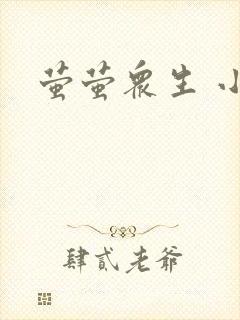 萤萤众生 小
肆贰老爷